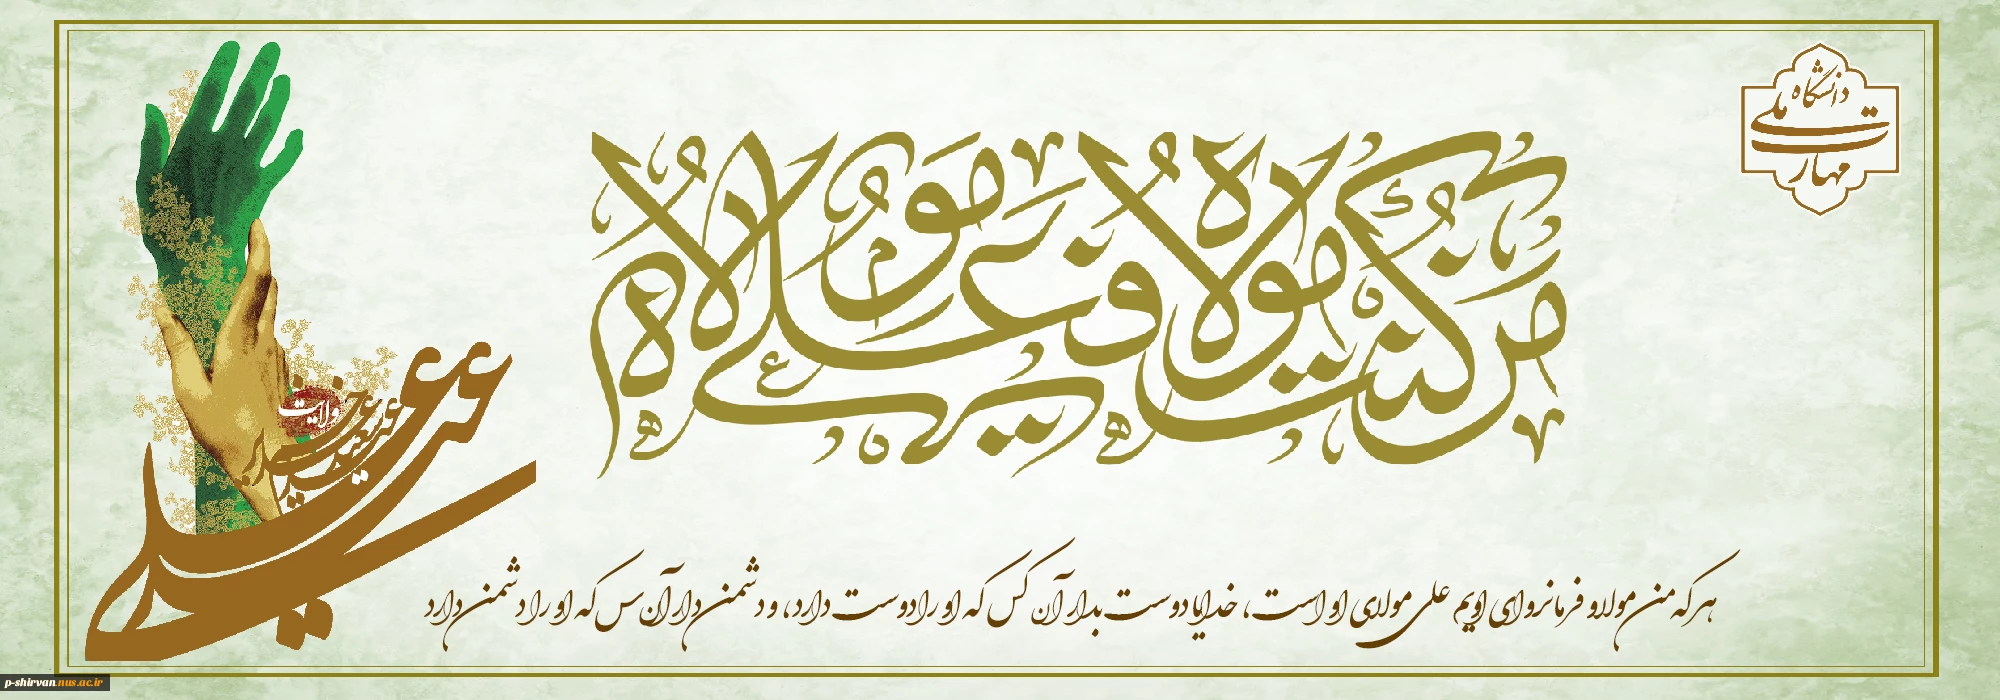 دانشگاه ملی
مهارت
من کنت مولاه فعلی مولاه
ولایت
عید سعید غدیر خم
علی
هر که من مولا و فرمانروای اویم علی مولای او است، خدایا دوست بدار آن کس که او را دوست دارد، و دشمن دار آن س که او را دشمن دارد
p-shirvan.nus.ac.ir